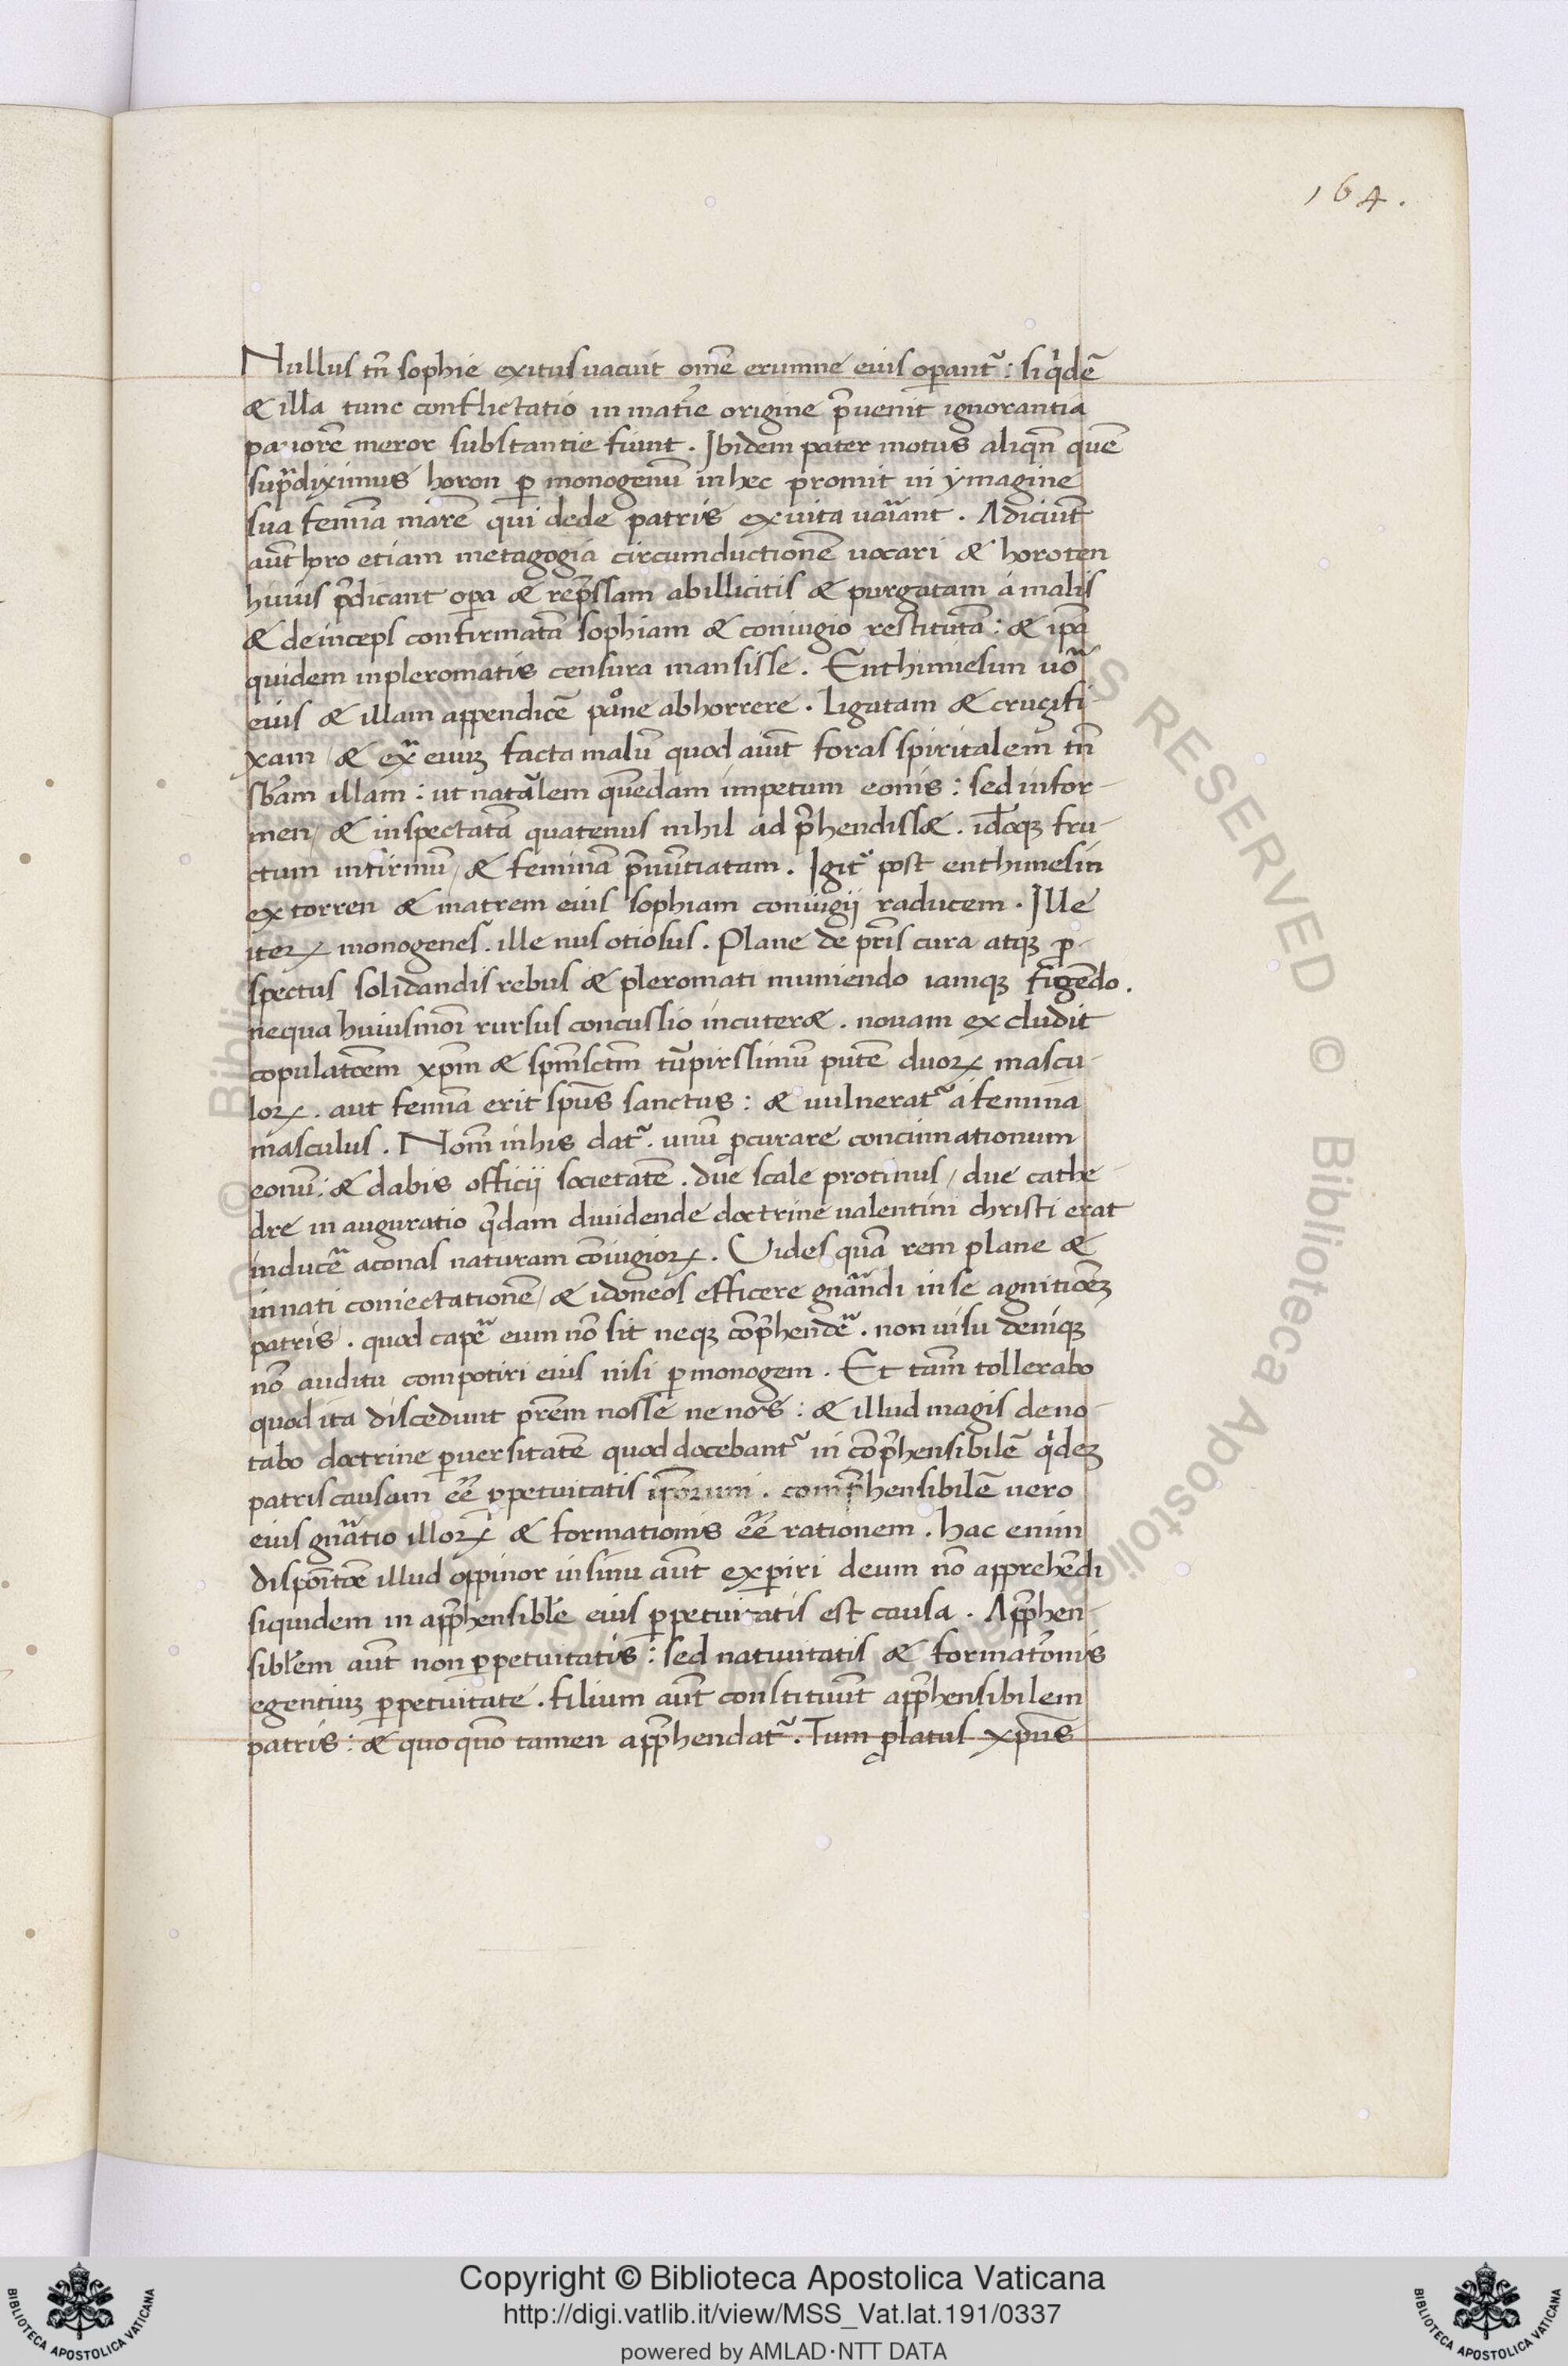 164.
Nullus tñ sophie exitus uacuit om̃e erumne eius oꝑant᷑ : siq'dẽ
& illa tunc conflictatio in mat'ie origine p̃uenit ignorantia
pauorẽ meror substantie fiunt . Ibidem pater motus aliqñ quẽ
sup̃diximus horon ꝑ monogenũ in hec promit in ymagine
sua femĩa marẽ qui dede patris ex uita uaĩant . Adiciũt
aũt horo etiam metagogia circumductionẽ uocari & horoten
huius p̃dicant oꝑa & rep̃ssam ab illicitis & purgatam a malis
& deinceps confirmatã sophiam & coniugio restitutã : & ip̃a
quidem in pleromatis censura mansisse . Enthimiesim uõ
eius & illam appendicẽ pone abhorrere . ligatam & crucifi-
xam / & ex̃ euꝫ facta malũ quod aiũt foras spiritalem tñ
sb̃am illam : ut natãlem quẽdam impetum eonis : sed infor-
men / & inspectatã quatenus nihil ad p̃hendiss& . id̃oqꝫ fru-
ctum infirmũ / & feminã p̃nũtiatam . Igit᷑ post enthimesin
ex torren & matrem eius sophiam coniugii raducem . Ille
iteꝝ monogenes . ille nus otiosus . Plane de p̃ris cura atqꝫ ꝓ-
spectus solidandis rebus & pleromati muniendo iamqꝫ figẽdo .
nequa huiusmõi rursus concussio incuter& . nouam excludit
copulatõem xp̃m & sp̃m sctm̃ tũpirssimũ putẽ duoꝝ mascu-
loꝝ . aut femĩa erit sp̃us sanctus : & uulnerat᷑ a femina
masculus . Nom̃ in his dat᷑ . unũ ꝓcurare concinnationum
eonũ : & dabis officii societatẽ . due scale protinus / due cathe-
dre in auguratio q̃dam diuidende doctrine ualentini christi erat
inducẽ aconas naturam cõiugioꝝ . Uides quã rem plane &
innati coniectationẽ / & idoneos efficere gnãndi in se agnitiõeꝫ
patris . quod cap̃e eum nõ sit neqꝫ cõp̃hendẽ . non uisu deniqꝫ
nõ auditu compotiri eius nisi ꝑ monogem . Et tam̃ tollerabo
quod ita discedunt pr̃em nosse ne nos : & illud magis deno-
tabo doctrine ꝑuersitatẽ quod docebant᷑ in cõp̃hensibilẽ q'deꝫ
patris causam eẽ ꝑpetuitatis ip̃orum . comp̃hensibilẽ uero
eius gnãtio illoꝝ & formationis eẽ rationem . hac enim
disponĩtõe illud oppinor insinuaũt exꝑiri deum nõ apprehẽdi
siquidem in app̃hensibl'e eius ꝑpetuitatis est causa . App̃hen-
sibl'em aũt non ꝑpetuitatis : sed natiuitatis & format'onis
egentiuꝫ ꝑpetuitate . filium aũt constituũt app̃hensibilem
patris : & quo quõ tamen app̃hendat᷑ . Tum ꝓlatus xp̃us
Copyright © Biblioteca Apostolica Vaticana
http://digi.vatlib.it/view/MSS_Vat.lat.191/0337
powered by AMLAD·NTT DATA